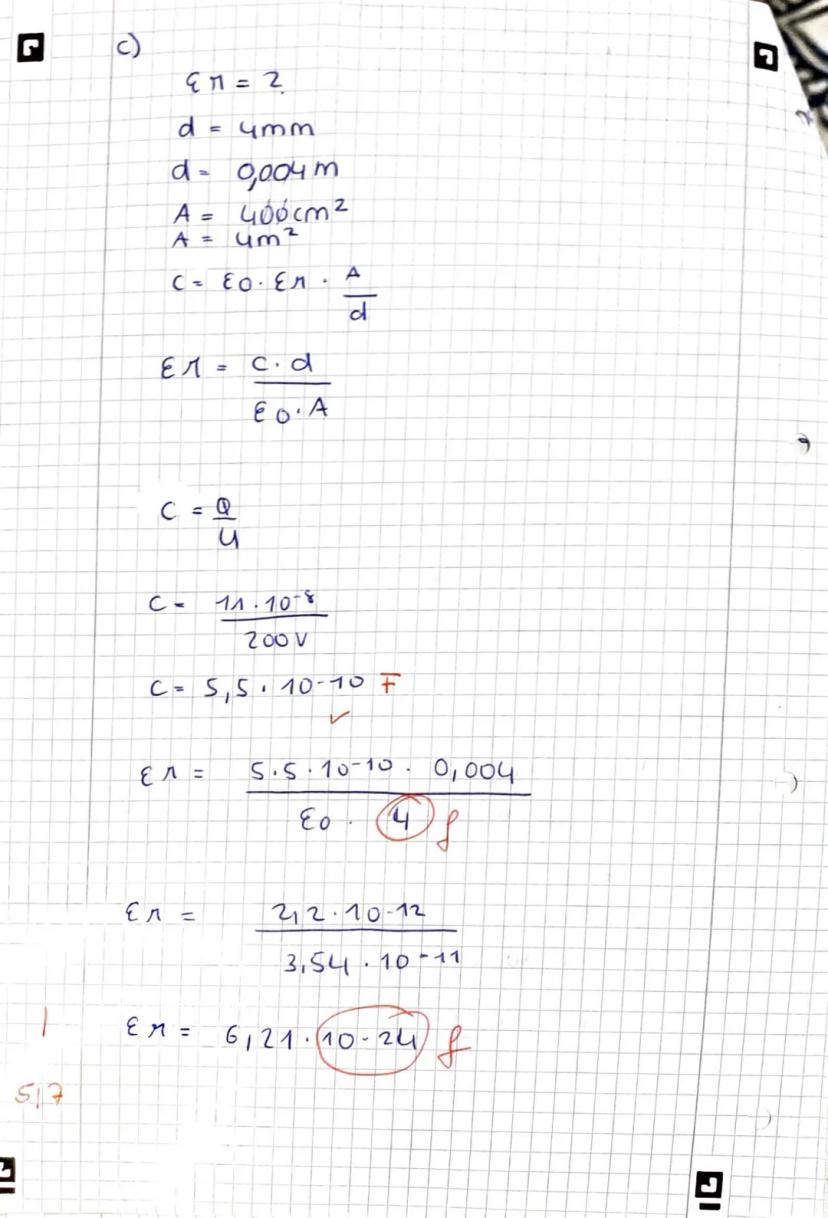 c)
εr = ?
d = 4mm
d = 0,004 m
A = 400cm²
A = 4m²
C = ε0 · εr · A/d
εr = C · d / ε0 · A
C = Q/U
C = 11 · 10⁻⁸ / 200 V
C = 5,5 · 10⁻¹⁰ F
✓
εr = 5.5 · 10⁻¹⁰ · 0,004 / ε0 · 4 f
εr = 2,2 · 10⁻¹² / 3,54 · 10⁻¹¹
εr = 6,21 · 10-24 f
1
5,7